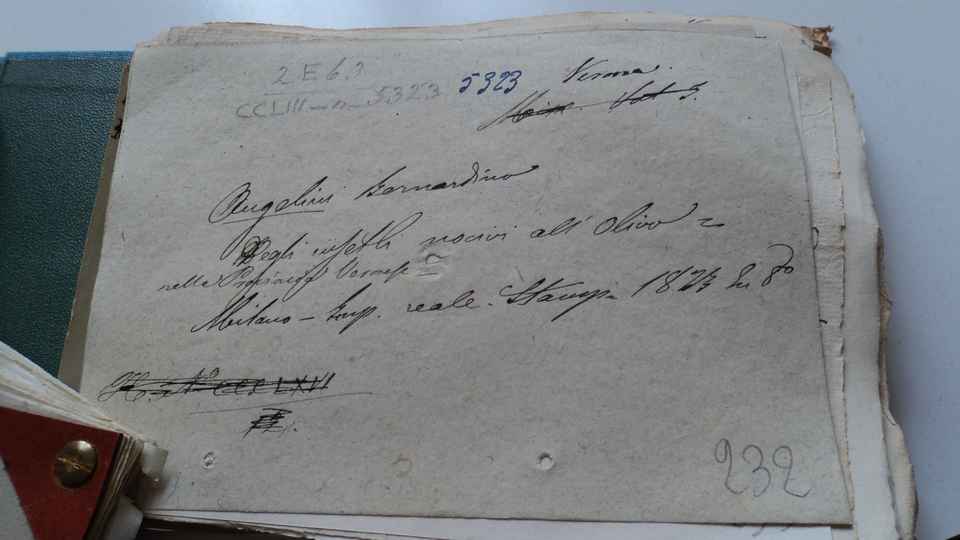 2 E 6.3
CCLIII - n - 5323
5323
Verona.
Angelini Bernardino
Degli insetti nocivi all' Olivo =
nelle Provincie Veronesi
Milano - Imp. reale. Stamp. 1823 in 8º
N° CCCLXVI
232